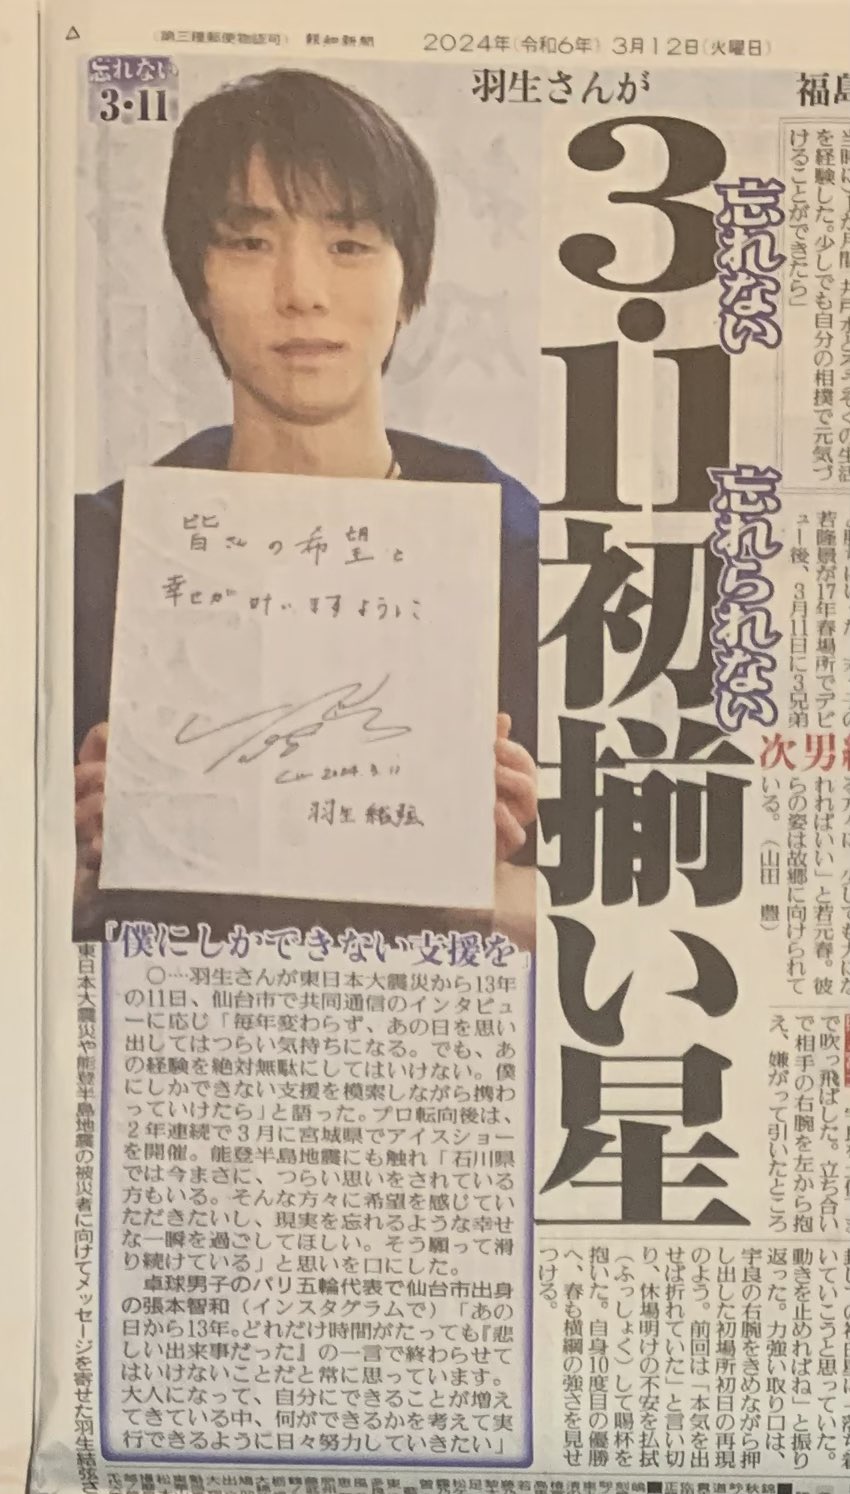 (第三種郵便物認可) 報知新聞 2024年(令和6年) 3月12日(火曜日)
忘れない
3・11
羽生さんが
3・11初揃い星
忘れない
忘れられない
を経験した。少しでも自分の相撲で元気づ
けることができたら」
若隆景が17年春場所でデビ
ュー後、3月11日に3兄弟
次男
れればいい」と若元春。彼
らの姿は故郷に向けられて
いる。(山田 豊)
で吹っ飛ばした。立ち合い
で相手の右腕を左から抱
え、嫌がって引いたところ
いていこうと思っていた。
動きを止めればね」と振り
返った。力強い取り口は、
宇良の右腕をきめながら押
し出した初場所初日の再現
のよう。前回は「本気を出
せば折れていた」と言い切
り、休場明けの不安を払拭
(ふっしょく)して賜杯を
抱いた。自身10度目の優勝
へ、春も横綱の強さを見せ
つける。
皆さんの希望と
幸せが叶いますように
2024.3.11
羽生結弦
「僕にしかできない支援を」
○…羽生さんが東日本大震災から13年
の11日、仙台市で共同通信のインタビュ
ーに応じ「毎年変わらず、あの日を思い
出してはつらい気持ちになる。でも、あ
の経験を絶対無駄にしてはいけない。僕
にしかできない支援を模索しながら携わ
っていけたら」と語った。プロ転向後は、
2年連続で3月に宮城県でアイスショー
を開催。能登半島地震にも触れ「石川県
では今まさに、つらい思いをされている
方もいる。そんな方々に希望を感じてい
ただきたいし、現実を忘れるような幸せ
な一瞬を過ごしてほしい。そう願って滑
り続けている」と思いを口にした。
卓球男子のパリ五輪代表で仙台市出身
の張本智和(インスタグラムで)「あの
日から13年。どれだけ時間がたっても『悲
しい出来事だった』の一言で終わらせて
はいけないことだと常に思っています。
大人になって、自分にできることが増え
てきている中、何ができるかを考えて実
行できるように日々努力していきたい」
東日本大震災や能登半島地震の被災者に向けてメッセージを寄せた羽生結弦さ